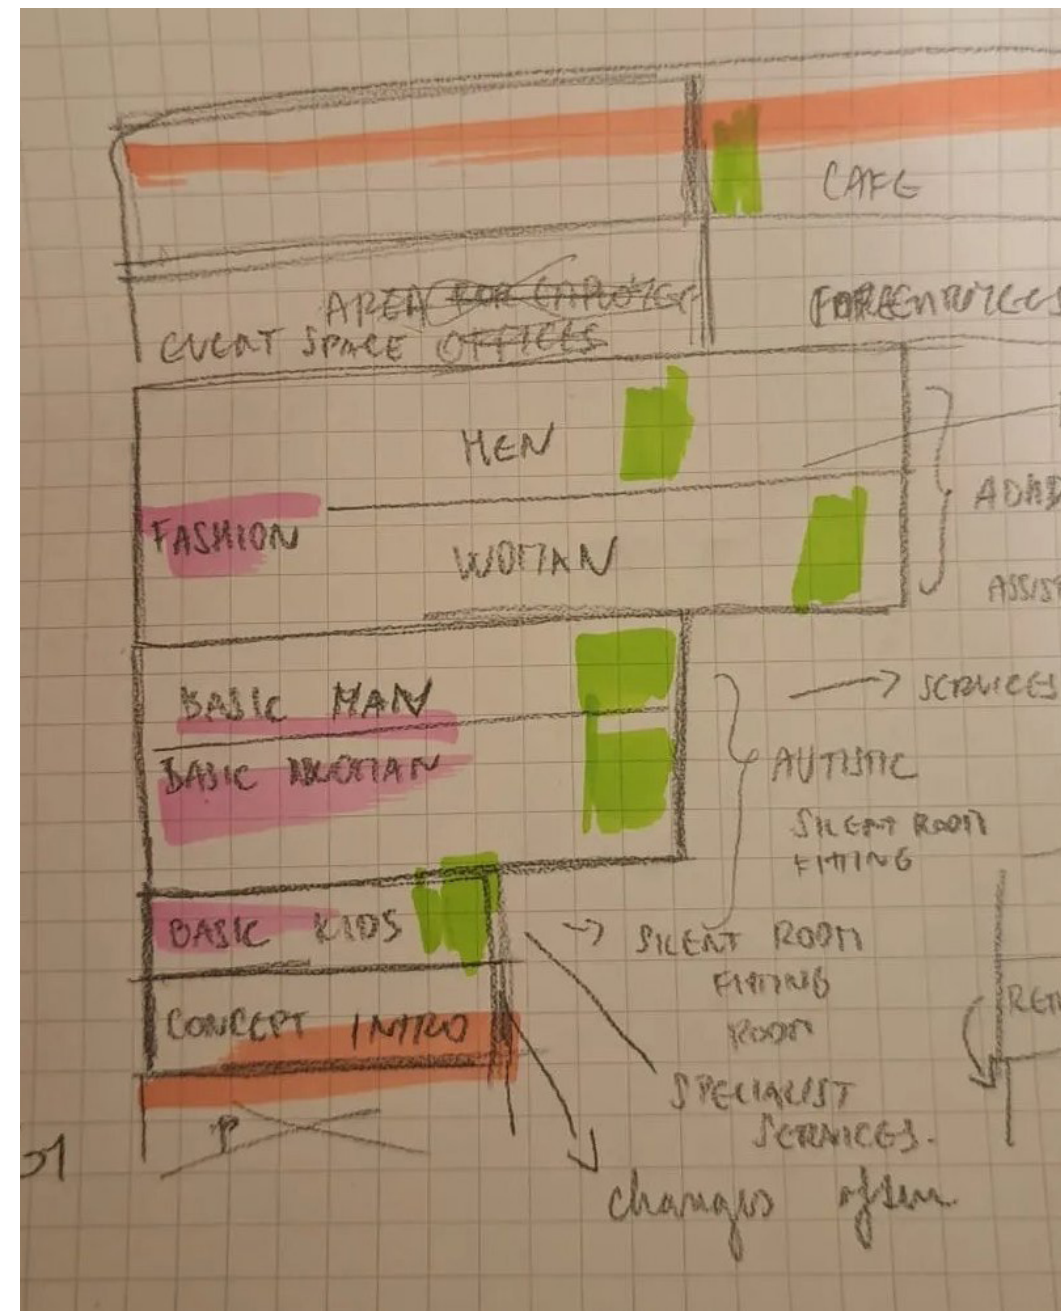 CAFE
AREA FOR EMPLOYEE
EVENT SPACE OFFICES
MEN
FASHION
WOMAN
ASSIST
BASIC MAN
SERVICES
BASIC WOMAN
AUTISTIC
SILENT ROOM
FITTING
BASIC KIDS
SILENT ROOM
FITTING
ROOM
CONCEPT INTRO
SPECIALIST
SERVICES.
P
changes often.
01